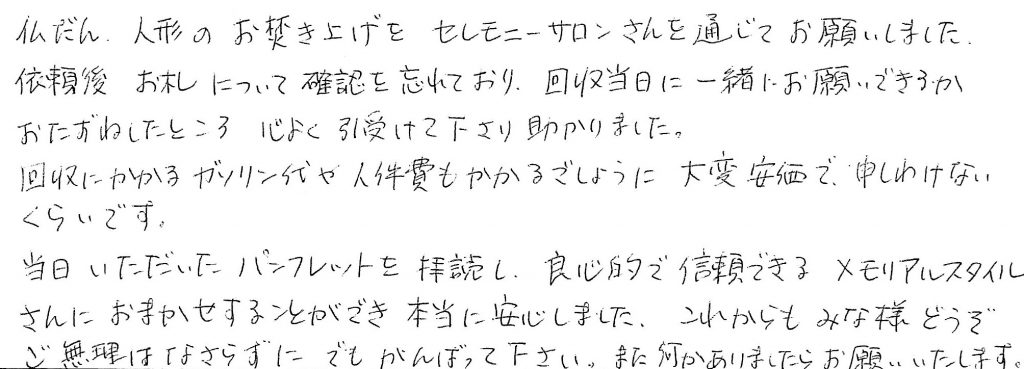 仏だん、人形の お焚き上げを セレモニーサロンさんを通じて お願いしました。
依頼後 お札について 確認を忘れており、回収当日に 一緒にお願いできるか
おたずねしたところ 心よく引受けて下さり 助かりました。
回収にかかる ガソリン代や 人件費もかかるでしょうに 大変安価で、申しわけない
くらいです。
当日 いただいた パンフレットを 拝読し、良心的で信頼できる メモリアルスタイル
さんに おまかせすることができ 本当に安心しました。これからも みな様 どうぞ
ご無理はなさらずに でも がんばって下さい。また何かありましたらお願いいたします。